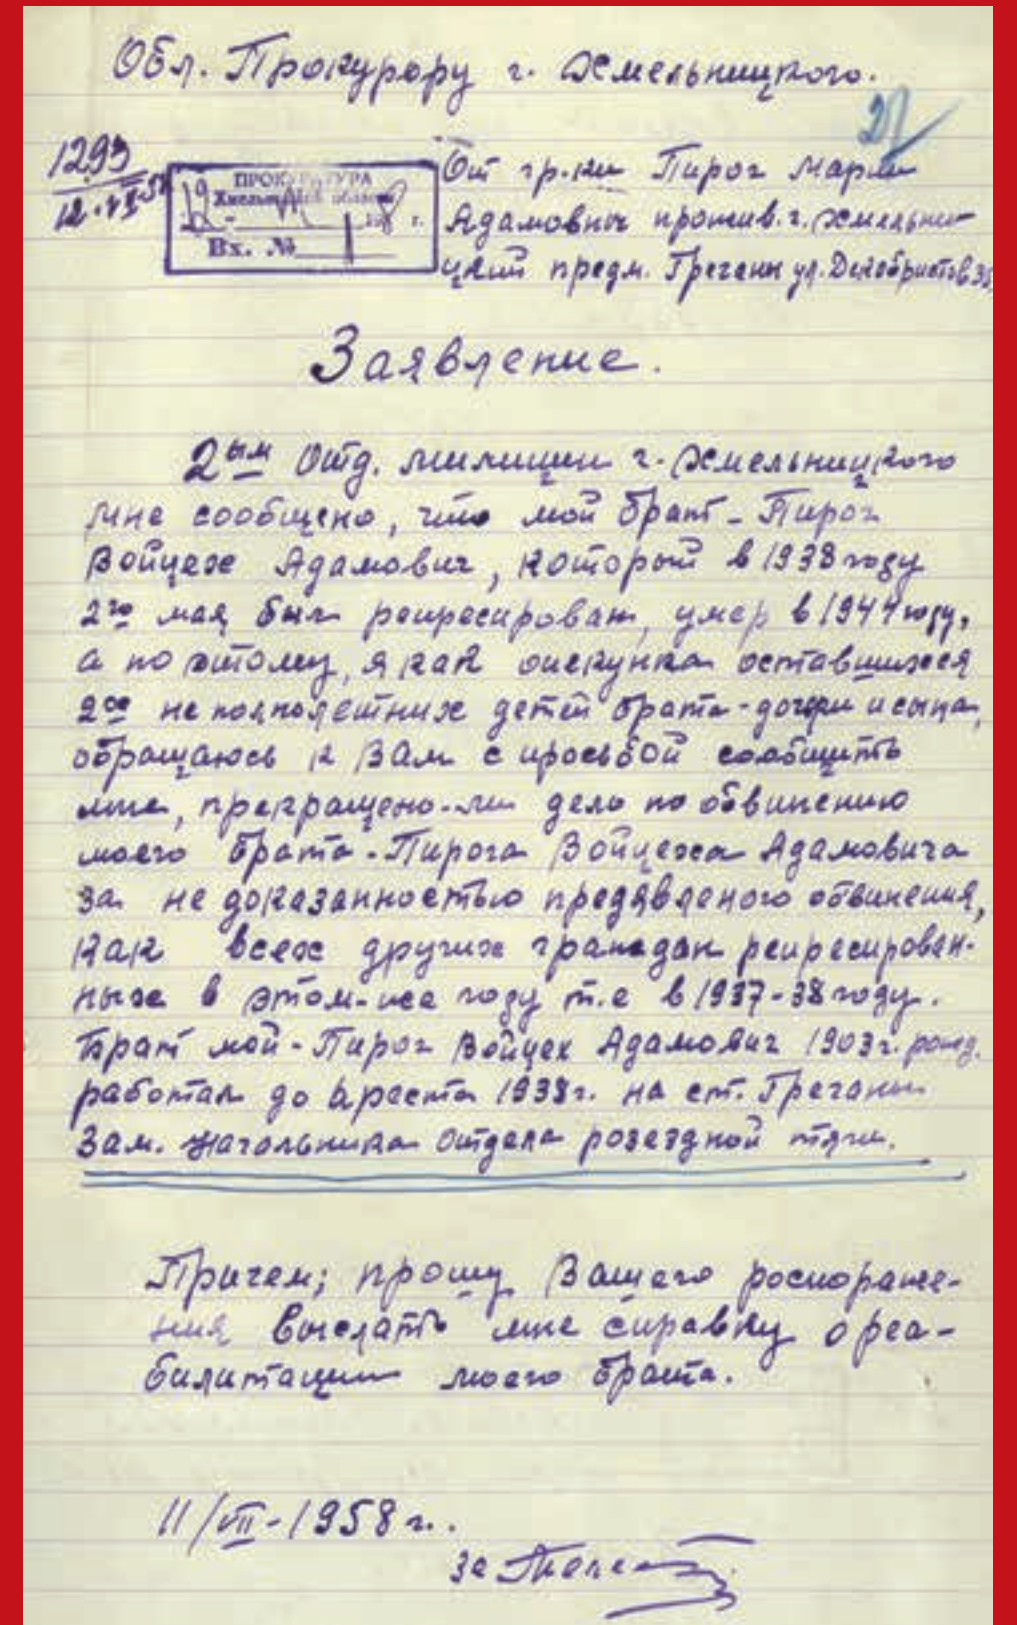 Обл. Прокурору г. Хмельницкого.
21
1293
12.VII-58
ПРОКУРАТУРА
Хмельницкой области
Вх. №
От гр.ки Пирог Марии
Адамовны прожив. г. Хмельни-
цкий предм. Гречаны ул. Декабристов 35,
Заявление.
2ым Отд. милиции г. Хмельницкого
мне сообщено, что мой брат - Пирог
Войцех Адамович, который в 1938 году
2го мая был репресирован, умер в 1944 году,
а по этому, я как опекунка оставшихся
2ох не полнолетних детей брата - дочери и сына,
обращаюсь к Вам с просьбой сообщить
мне, прекращено-ли дело по обвинению
моего брата - Пирога Войцеха Адамовича
за не доказанностью предявленого обвинения,
как всех других граждан репресирован-
ных в этом-же году т.е в 1937-38 году.
Брат мой - Пирог Войцех Адамович 1903 г. рожд.
работал до ареста 1938 г. на ст. Гречаны
Зам. Начальника отдела розездной тяги.
Причем; прошу Вашего роспораже-
ния выслать мне справку о реа-
билитации моего брата.
11/VII-1958 г.
за